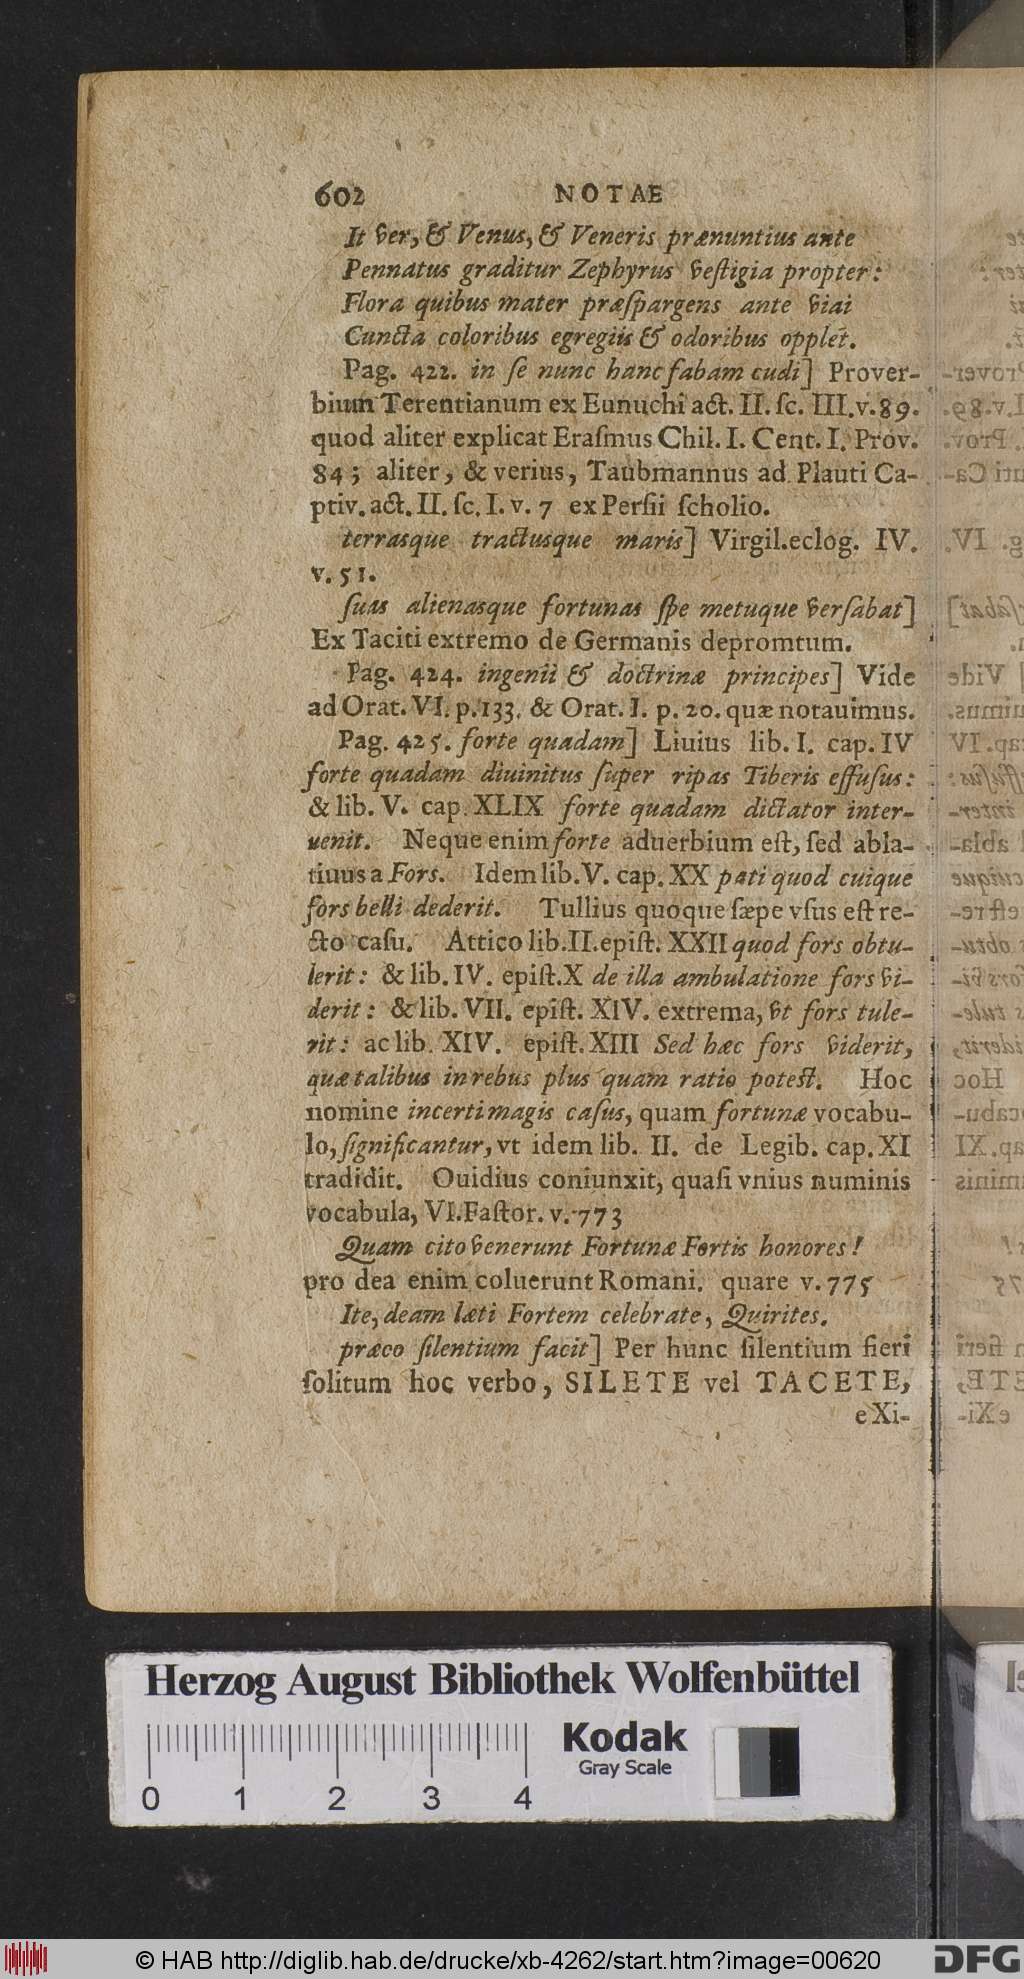 602 NOTAE
It ver, & Venus, & Veneris prænuntius ante
Pennatus graditur Zephyrus veſtigia propter:
Flora quibus mater præſpargens ante viai
Cuncta coloribus egregiis & odoribus opplet.
Pag. 422. in ſe nunc hanc fabam cudi] Prover-
bium Terentianum ex Eunuchi act. II. ſc. III. v. 89.
quod aliter explicat Eraſmus Chil. I. Cent. I. Prov.
84; aliter, & verius, Taubmannus ad Plauti Ca-
ptiv. act. II. ſc. I. v. 7 ex Perſii ſcholio.
terrasque tractusque maris] Virgil. eclog. IV.
v. 51.
ſuas alienasque fortunas ſpe metuque verſabat]
Ex Taciti extremo de Germanis depromtum.
Pag. 424. ingenii & doctrinæ principes] Vide
ad Orat. VI. p. 133. & Orat. I. p. 20. quæ notauimus.
Pag. 425. forte quadam] Liuius lib. I. cap. IV
forte quadam diuinitus ſuper ripas Tiberis effuſus:
& lib. V. cap. XLIX forte quadam dictator inter-
uenit. Neque enim forte aduerbium eſt, ſed abla-
tiuus a Fors. Idem lib. V. cap. XX pati quod cuique
fors belli dederit. Tullius quoque ſæpe vſus eſt re-
cto caſu. Attico lib. II. epiſt. XXII quod fors obtu-
lerit: & lib. IV. epiſt. X de illa ambulatione fors vi-
derit: & lib. VII. epiſt. XIV. extrema, vt fors tule-
rit: ac lib. XIV. epiſt. XIII Sed hæc fors viderit,
quæ talibus in rebus plus quam ratio poteſt. Hoc
nomine incerti magis caſus, quam fortunæ vocabu-
lo, ſignificantur, vt idem lib. II. de Legib. cap. XI
tradidit. Ouidius coniunxit, quaſi vnius numinis
vocabula, VI. Faſtor. v. 773
Quam cito venerunt Fortunæ Fortis honores!
pro dea enim coluerunt Romani. quare v. 775
Ite, deam læti Fortem celebrate, Quirites.
præco ſilentium facit] Per hunc ſilentium fieri
ſolitum hoc verbo, SILETE vel TACETE,
e Xi-
Herzog August Bibliothek Wolfenbüttel
Kodak
Gray Scale
0 1 2 3 4
© HAB http://diglib.hab.de/drucke/xb-4262/start.htm?image=00620
DFG